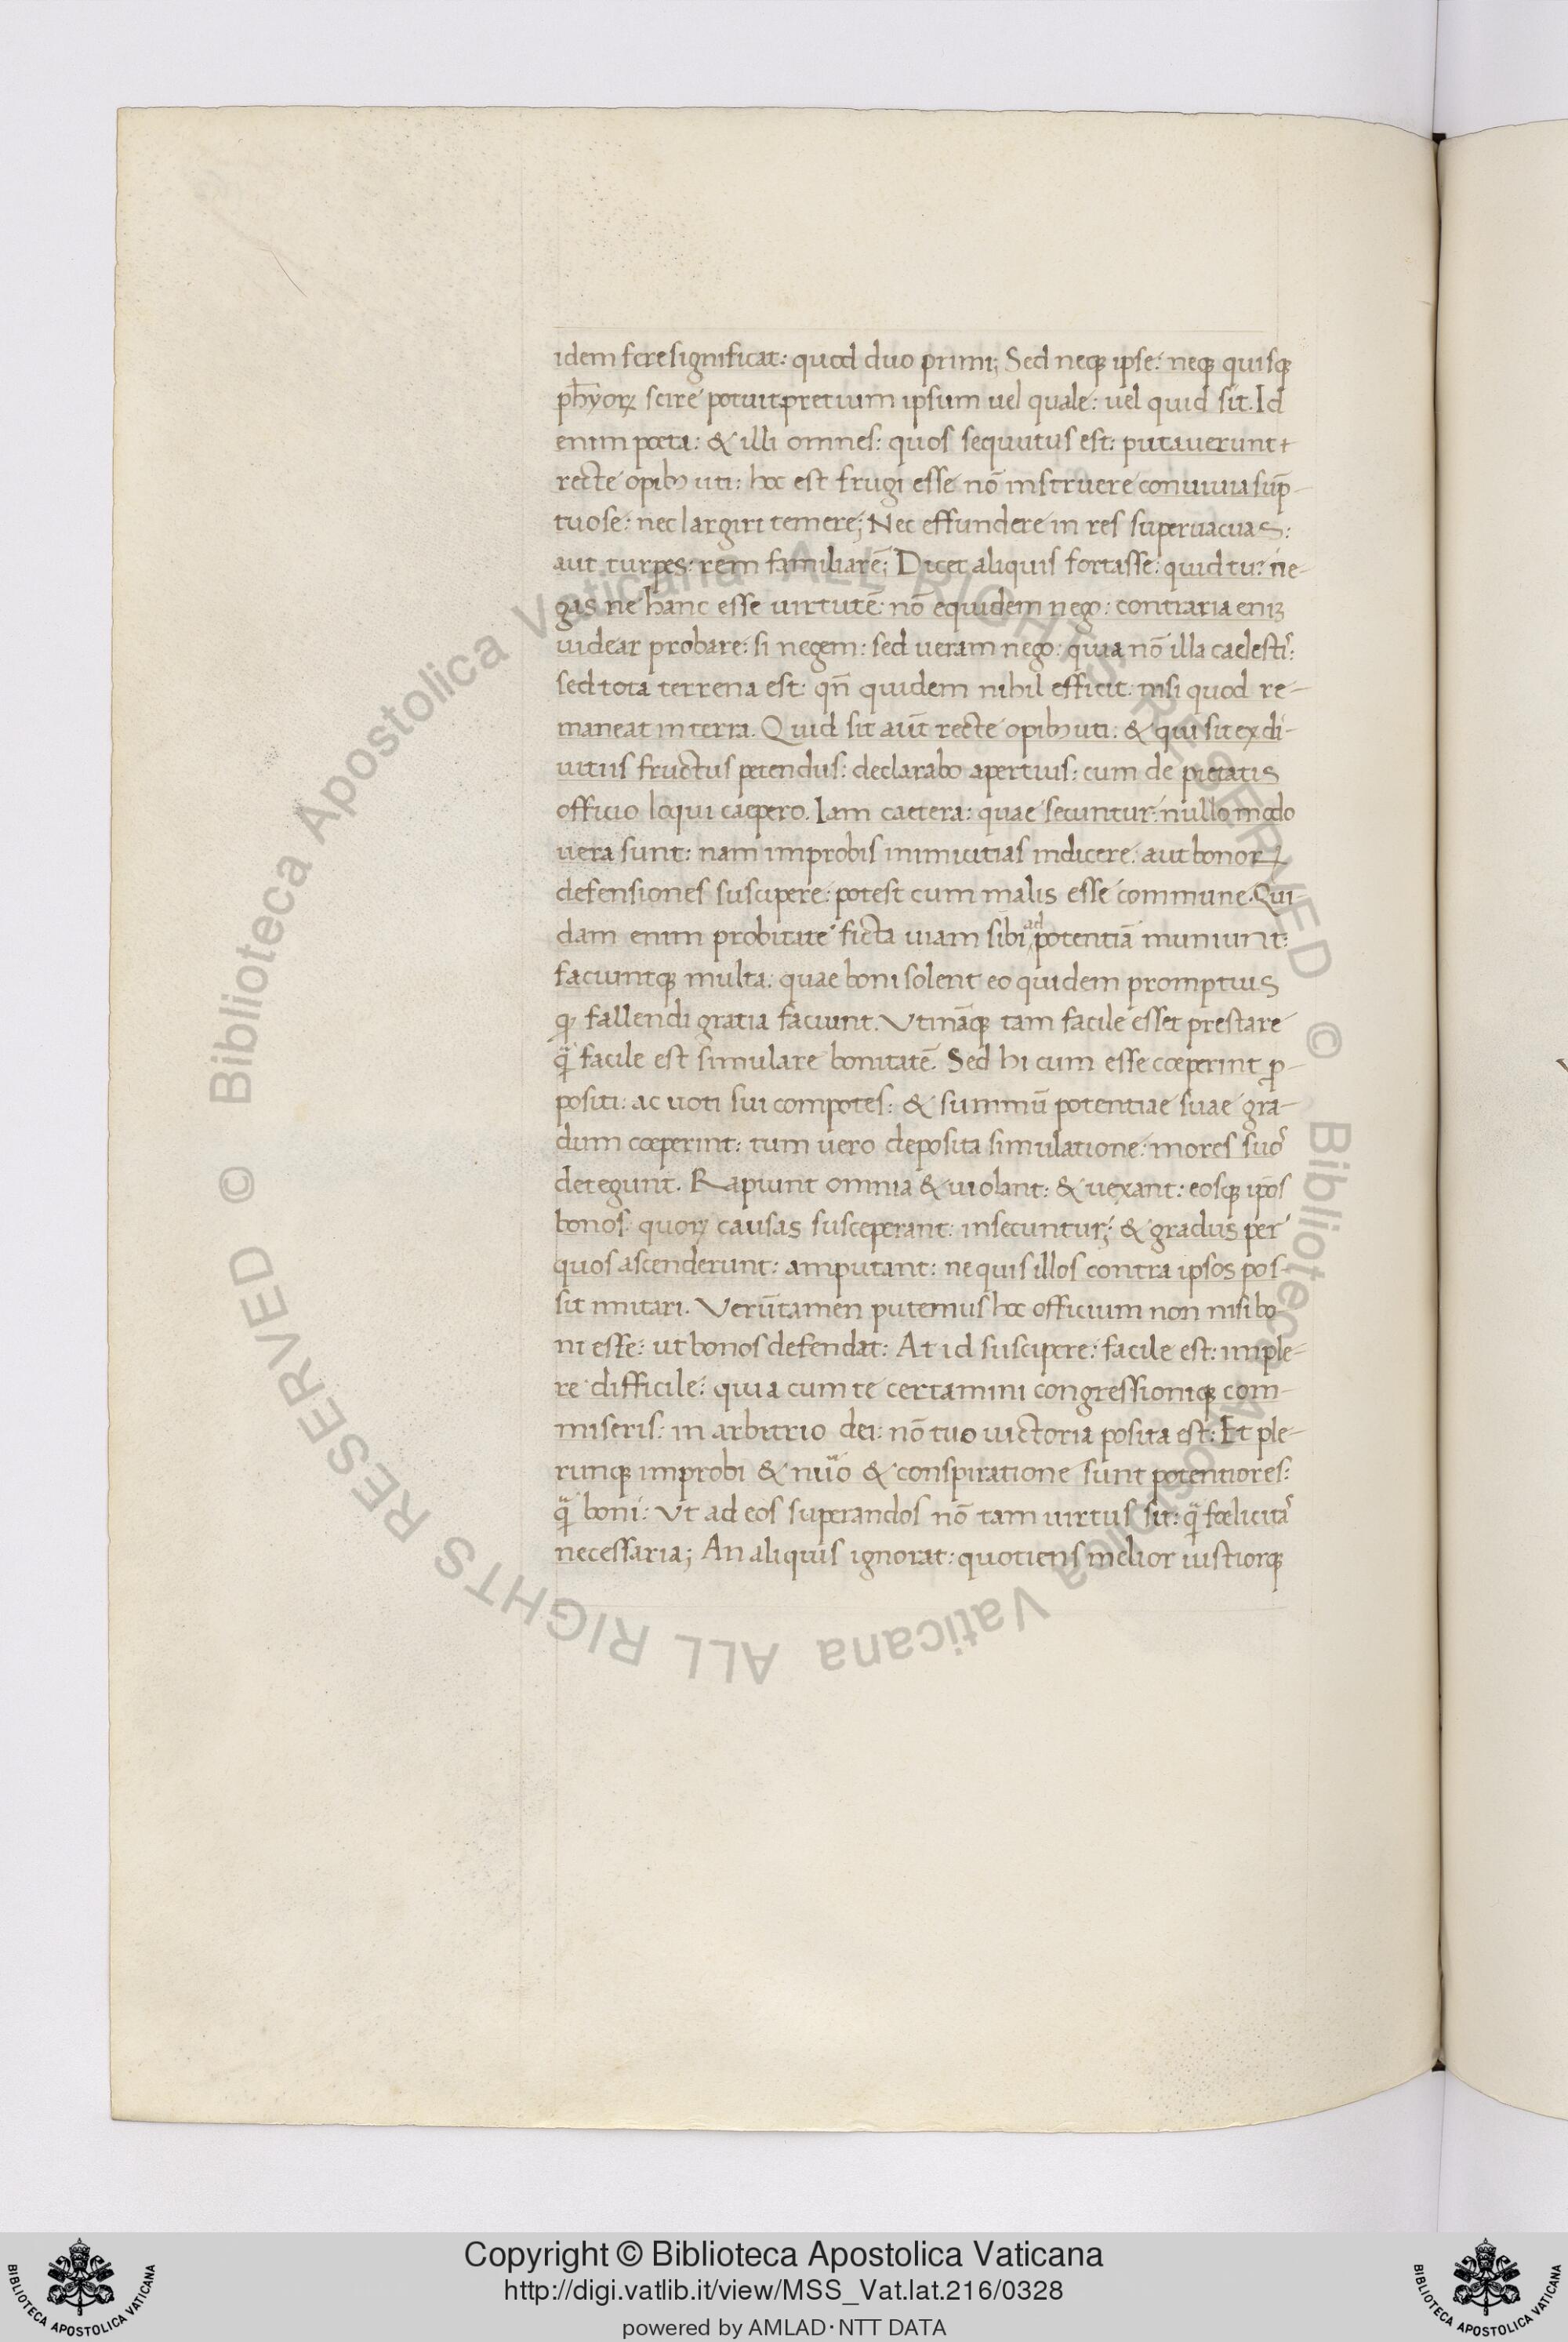 idem fere significat: quod duo primi; Sed neq; ipse: neq; quisq;
ph̄yoꝝ scire potuit pretium ipsum uel quale: uel quid sit. Id
enim poeta: & illi omnes: quos sequutus est: putauerunt
recte opibꝫ uti: hoc est frugi esse nō instruere conuiuia sūp-
tuose: nec largiri temere; Nec effundere in res superuacuas:
aut turpes: rem familiarē; Dicet aliquis fortasse: quid tu: ne-
gas ne hanc esse uirtutē: nō equidem nego: contraria enīꝫ
uidear probare: si negem: sed ueram nego: quia nō illa caelestis:
sed tota terrena est: qn̄ quidem nihil efficit: nisi quod re-
maneat in terra. Quid sit aūt recte opibꝫ uti: & qui sit ex di-
uitiis fructus petendus: declarabo apertius: cum de pietatis
officio loqui caepero. Iam caetera: quae secuntur: nullo modo
uera sunt: nam improbis inimicitias indicere: aut bonoꝝ
defensiones suscipere: potest cum malis esse commune. Qui-
dam enim probitate ficta uiam sibi ad potentiā muniunt:
faciuntq; multa: quae boni solent eo quidem promptius
ꝙ fallendi gratia faciunt. Vtināq; tam facile esset prestare
q̄ facile est simulare bonitatē. Sed hi cum esse coeperint ꝓ-
positi: ac uoti sui compotes: & summū potentiae suae gra-
dum coeperint: tum uero deposita simulatione: mores suos
detegunt. Rapiunt omnia & uiolant: & uexant: eosq; ip̄os
bonos: quoꝝ causas susceperant: insecuntur; & gradus per
quos ascenderunt: amputant: ne quis illos contra ipsos pos-
sit imitari. Verūtamen putemus hoc officium non nisi bo-
ni esse: ut bonos defendat: At id suscipere: facile est: imple-
re difficile: quia cum te certamini congressioniq; com-
miseris: in arbitrio dei: nō tuo uictoria posita est: Et ple-
runq; improbi & nūo & conspiratione sunt potentiores:
q̄ boni: Vt ad eos superandos nō tam uirtus sit: q̄ foelicitas
necessaria; An aliquis ignorat: quotiens melior iustiorq;
© Biblioteca Apostolica Vaticana ALL RIGHTS RESERVED © Biblioteca Apostolica Vaticana ALL RIGHTS RESERVED
BIBLIOTECA APOSTOLICA VATICANA
Copyright © Biblioteca Apostolica Vaticana
http://digi.vatlib.it/view/MSS_Vat.lat.216/0328
powered by AMLAD·NTT DATA
BIBLIOTECA APOSTOLICA VATICANA